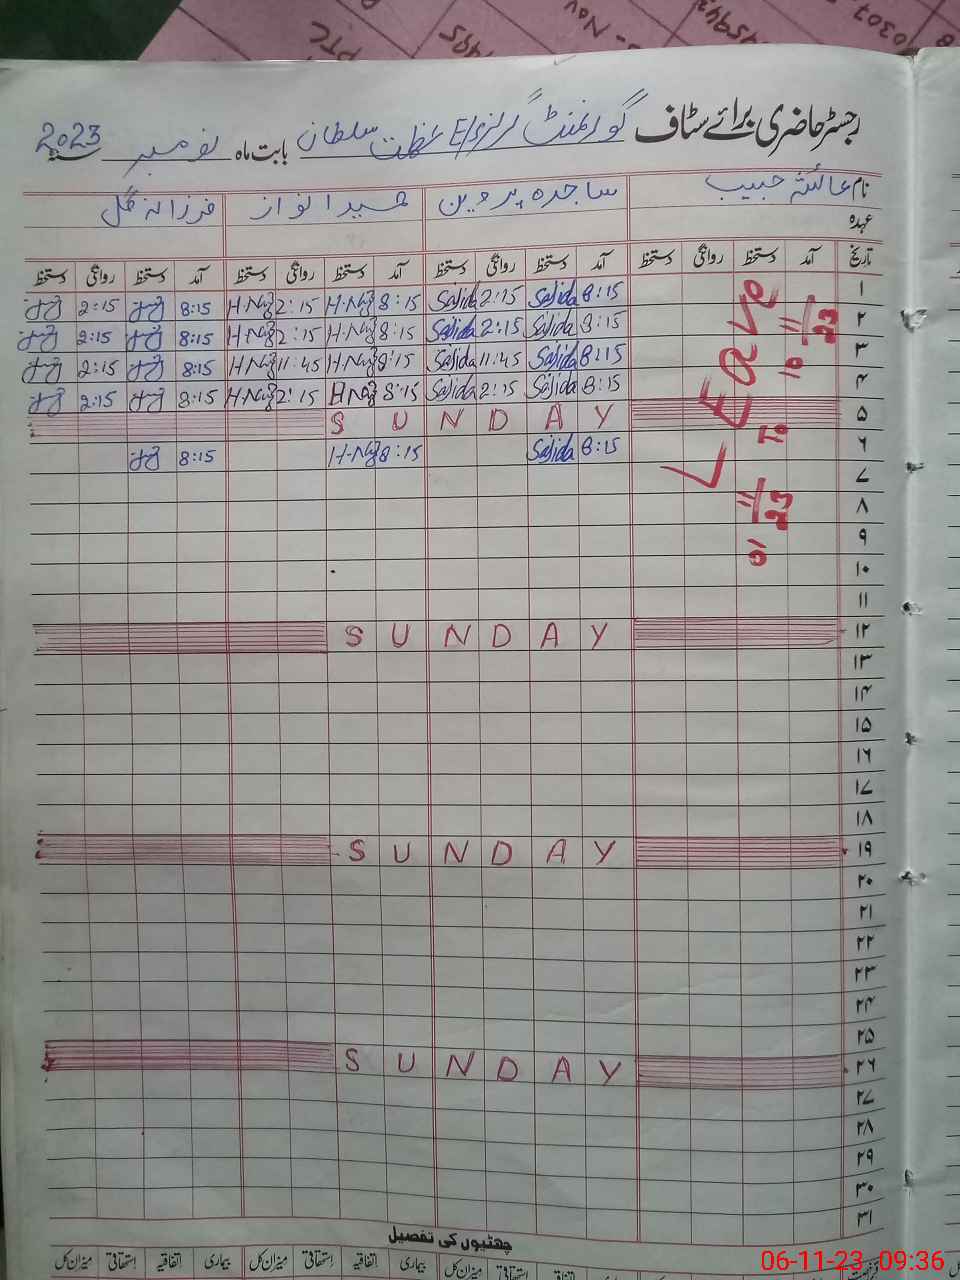 رجسٹر حاضری برائے سٹاف گورنمنٹ گرلز E/ عظمت سلطان بابت ماہ نومبر 2023
نام عائشہ حبیب ساجدہ پروین حمیدا نواز فرزانہ گل
عہدہ
تاریخ آمد دستخط روانگی دستخط آمد دستخط روانگی دستخط آمد دستخط روانگی دستخط آمد دستخط روانگی دستخط
۱ 8:15 Sajida 2:15 Sajida 8:15 H-Naz 2:15 H-Naz 8:15 2:15
۲ 8:15 Sajida 2:15 Sajida 8:15 H-Naz 2:15 H-Naz 8:15 2:15
۳ 8:15 Sajida 11:45 Sajida 8:15 H-Naz 11:45 H-Naz 8:15 2:15
۴ 8:15 Sajida 2:15 Sajida 8:15 H-Naz 2:15 H-Naz 8:15 2:15
LEAVE
01 11/23 To 10 11/23
۵ SUNDAY
۶ 8:15 Sajida 8:15 H-Naz 8:15
۷
۸
۹
۱۰
۱۱
۱۲ SUNDAY
۱۳
۱۴
۱۵
۱۶
۱۷
۱۸
۱۹ SUNDAY
۲۰
۲۱
۲۲
۲۳
۲۴
۲۵
۲۶ SUNDAY
۲۷
۲۸
۲۹
۳۰
۳۱
چھٹیوں کی تفصیل
بیماری اتفاقیہ استحقاقی میزان کل بیماری اتفاقیہ استحقاقی میزان کل
06-11-23 09:36